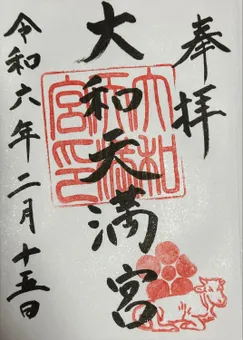 奉拝
大和天満宮
令和六年二月十五日
大和天満宮印